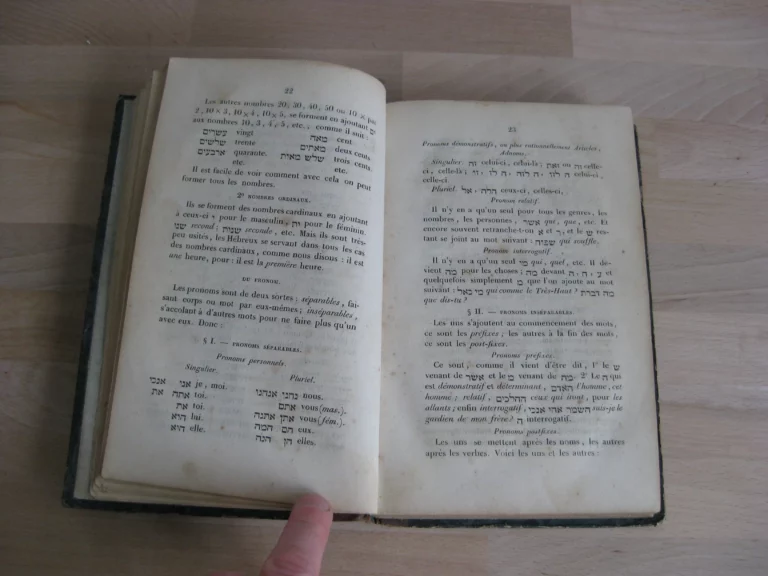 22
Les autres nombres 20, 30, 40, 50 ou 10 ×
2, 10 × 3, 10 × 4, 10 × 5, se forment en ajoutant ים
aux nombres 10, 3, 4, 5, etc.; comme il suit
עשרים vingt מאה cent
שלשים trente מאתים deux cents
ארבעים quarante. שלש מאות trois cents.
etc. etc.
Il est facile de voir comment avec cela on peut
former tous les nombres.
2° NOMBRES ORDINAUX.
Ils se forment des nombres cardinaux en ajoutant
à ceux-ci י pour le masculin, יה pour le féminin.
שני second; שנית seconde, etc. Mais ils sont très-
peu usités, les Hébreux se servant dans tous les cas
des nombres cardinaux, comme nous disons : il est
une heure, pour : il est la première heure.
DU PRONOM.
Les pronoms sont de deux sortes : séparables, fai-
sant corps ou mot par eux-mêmes; inséparables,
s'accolant à d'autres mots pour ne faire plus qu'un
avec eux. Donc :
§ I. — PRONOMS SÉPARABLES.
Pronoms personnels.
Singulier. Pluriel.
אני אנכי je, moi. נחנו אנחנו nous.
אתה את toi. אתם vous (mas.).
את toi. אתן אתנה vous (fém.).
הוא lui. הם המה eux.
היא elle. הן הנה elles.
23
Pronoms démonstratifs, ou plus rationnellement Articles
Singulier זה celui-ci, celui-là; זאת ou זו celle-
ci, celle-là; celui-ci,
celle-ci
Pluriel. אל, האלה ceux-ci, celles-ci.
Pronom relatif.
Il n'y en a qu'un seul pour tous les genres, les
nombres, les personnes, אשר qui, que, etc. Et
encore souvent retranche-t-on א et ר, et le ש res-
tant se joint au mot suivant : qui souffle.
Pronom interrogatif.
Il n'y en a qu'un seul מי qui, quel, etc. Il de-
vient מה pour les choses; מה devant ע, ה, ח et
quelquefois simplement מ que l'on ajoute au mot
suivant : qui comme le Très-Haut?
que dis-tu?
§ II. — PRONOMS INSÉPARABLES
Les uns s'ajoutent au commencement des mots,
ce sont les préfixes; les autres à la fin, ce sont
les post-fixes.
Pronoms préfixes
Ce sont, comme il vient d'être dit, 1° le ש
venant de אשר et le מ venant de מה. 2° Le ה qui
est démonstratif et déterminant, האדם l'homme, cet
homme; relatif, ההלכים ceux qui iront, pour les
allants; enfin interrogatif, השמר אחי אנכי suis-je le
gardien de mon frère? ה interrogatif.
Pronoms postfixes
Les uns se mettent après les noms, les autres
après les verbes. Voici les uns et les autres :